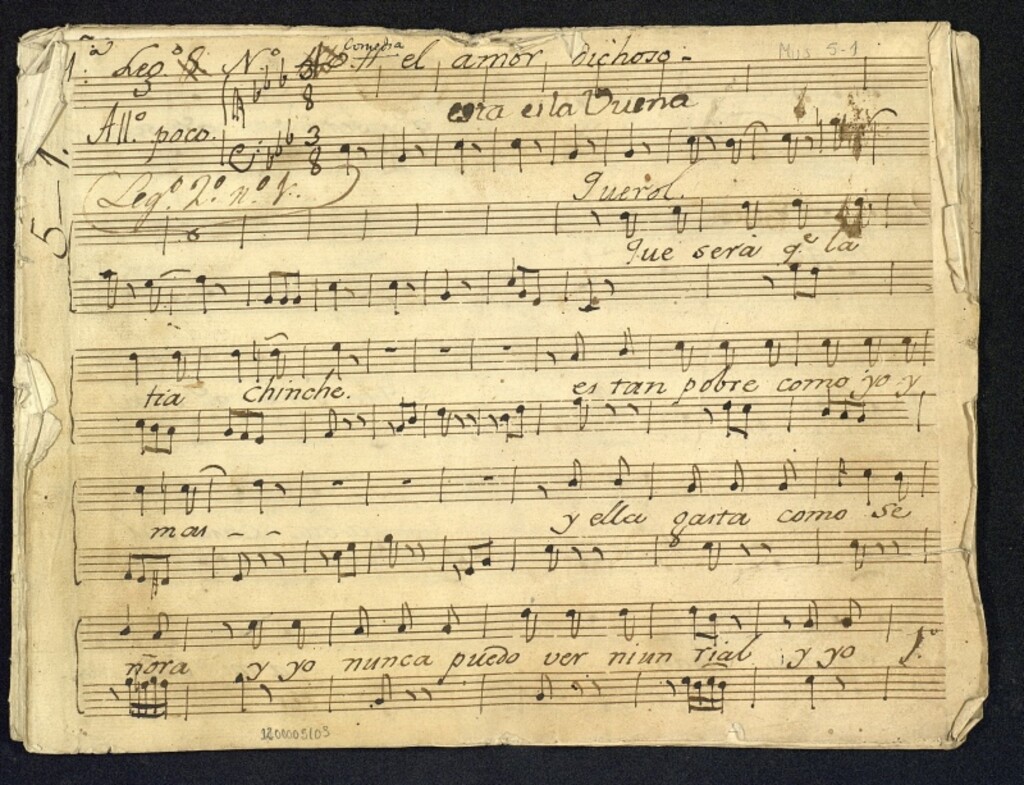 1.ª Leg.º 8 N.º Comedia el amor dichoso. Mus 5-1
3
esta es la Buena
All.º poco.
3 8
3 8
5-1.
Leg.º 2.º n.º 1.
Querol
Que sera q.e la
tia chinche. es tan pobre como yo y
mas y ella gasta como se
ñora y yo nunca puedo ver ni un rial y yo
1200005103